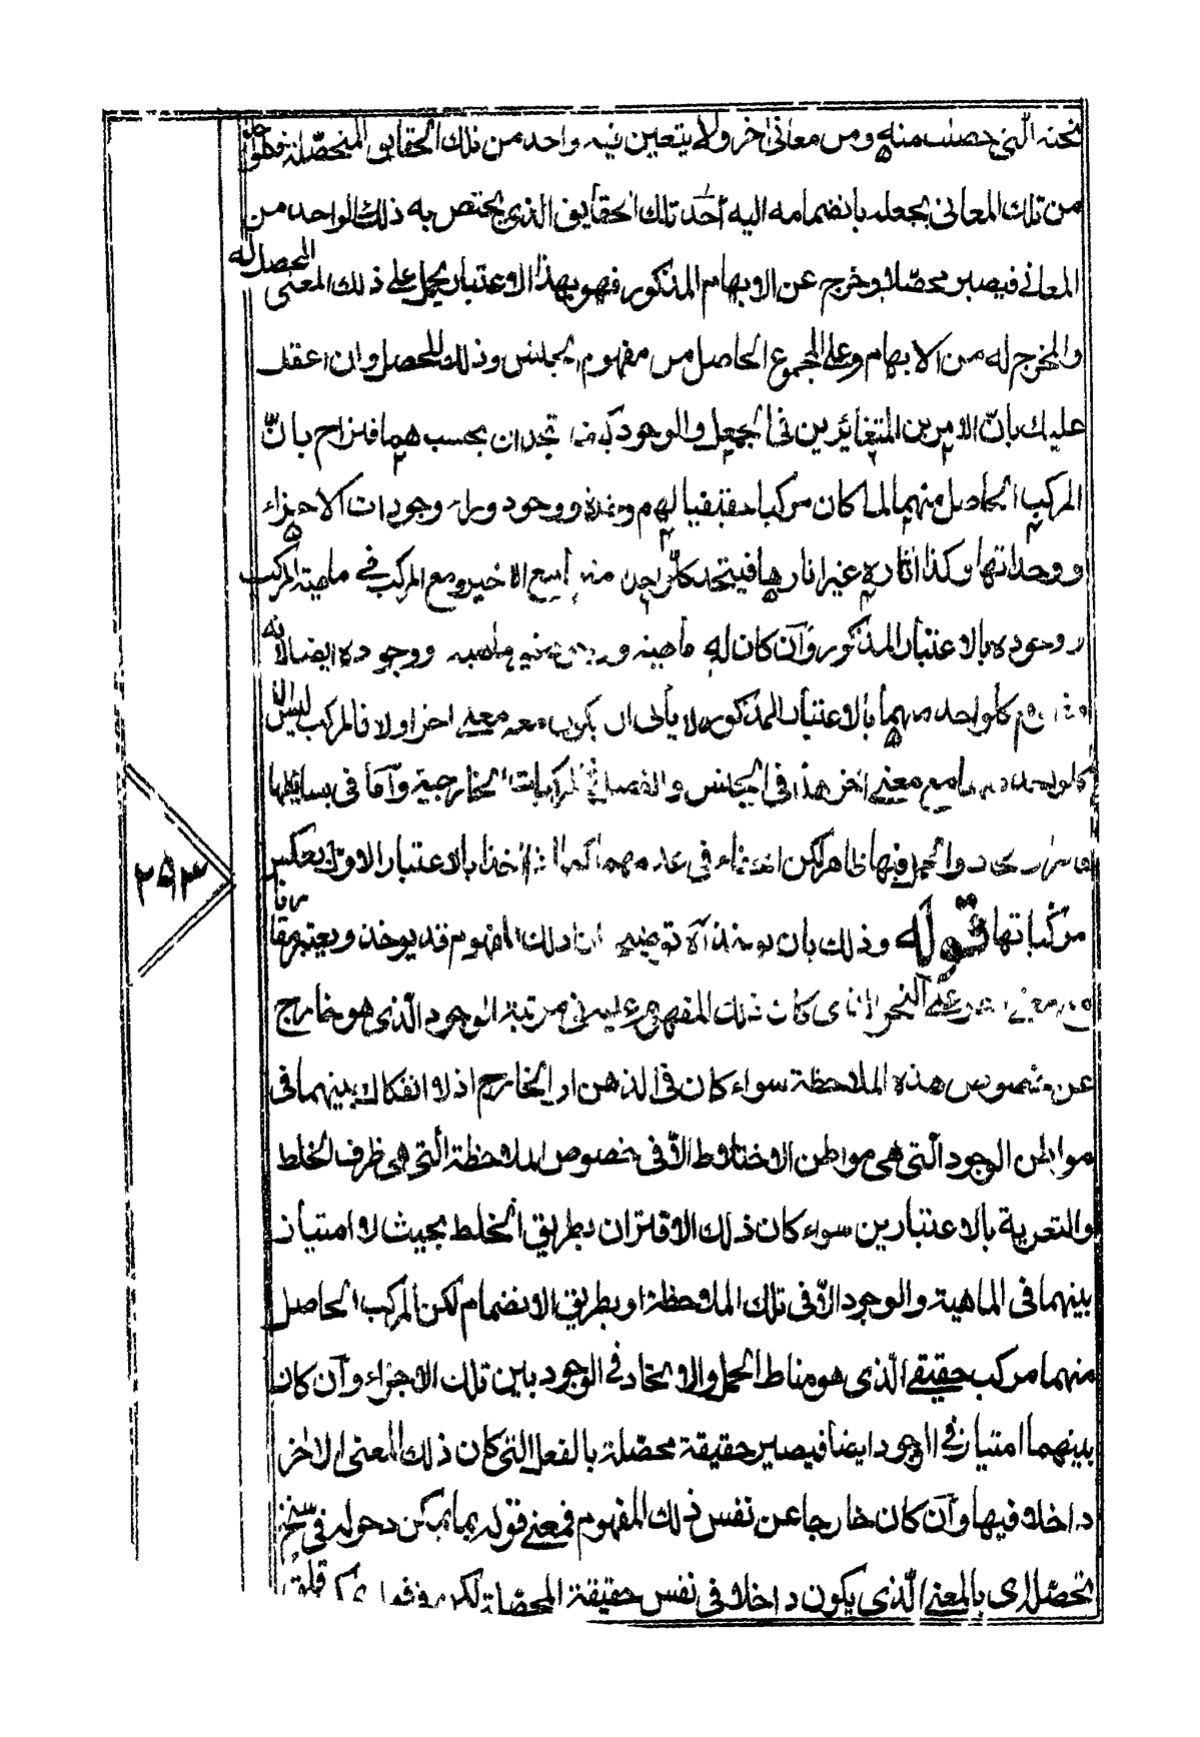 تحته الّتى حصلت منه ومن معانى اخر ولا يتعين فيه واحد من تلك الحقايق المتحصّلة فكلّ واحد
من تلك المعانى يجعله بانضمامه اليه أحد تلك الحقايق الذى يختص به ذلك الواحد من
المعانى فيصير محصّلا وخرج عن الابهام المذكور فهو بهذا الاعتبار يحمل على ذلك المعنى المحصل له
والمخرج له من الابهام وعلى المجموع الحاصل من مفهوم الجنس وذلك المحصل وان اعقل
عليك بانّ الامرين المتغائرين فى الجعل والوجود كيف تتحدان بحسبهما فتزاح بانّ
المركب الحاصل منهما لما كان مركبا حقيقيا لهم وحدة ووجود وراء وجودات الاجزاء
ووحداتها وكذا اثاره غير اثارها فيتحد كل واحد منهما مع الاخير ومع المركب فى ماهية المركب
ووجوده بالاعتبار المذكور وآن كان له ماهية و ماهيته ووجوده ايضا لانه
مفهوم كل واحد منهما بالاعتبار المذكور لا يأبى ان يكون معه معنى اخر اولا فالمركب ليس الا
كل واحد منهما مع معنى اخر هذا فى الجنس والفصل فى المركبات الخارجية وآما فى بسايطها
والحمل فيها ظاهر لكن فى كما الاخذ بالاعتبار الاول بعكس
مركباتها قوله وذلك بان يوخذ آه توضيحه ان ذلك المفهوم قد يوخذ ويعتبر مقارنا
مع معنى على النحو الذى كان ذلك المفهوم عليه فى مرتبة الوجود الّذى هو خارج
عن خصوص هذه الملاحظة سواء كان فى الذهن او الخارج اذ لا انفكاك بينهما فى
مواطن الوجود الّتى هى مواطن الاختلاط الّا فى خصوص الملاحظة الّتى هى ظرف الخلط
والتعرية بالاعتبارين سواء كان ذلك الاقتران بطريق الخلط بحيث لا امتياز
بينهما فى الماهية والوجود الّا فى تلك الملاحظة او بطريق الانضمام لكن المركب الحاصل
منهما مركب حقيقى الّذى هو مناط الحمل والاتحاد فى الوجود بين تلك الاجزاء وآن كان
بينهما امتياز فى الوجود ايضا فيصير حقيقة محصّلة بالفعل التى كان ذلك المعنى الاخر
داخلا فيها وآن كان خارجا عن نفس ذلك المفهوم فمعنى قوله بما يمكن دخوله فى سنخ
تحصّله اى بالمعنى الّذى يكون داخلا فى نفس حقيقة المحصّلة
٢٥٣